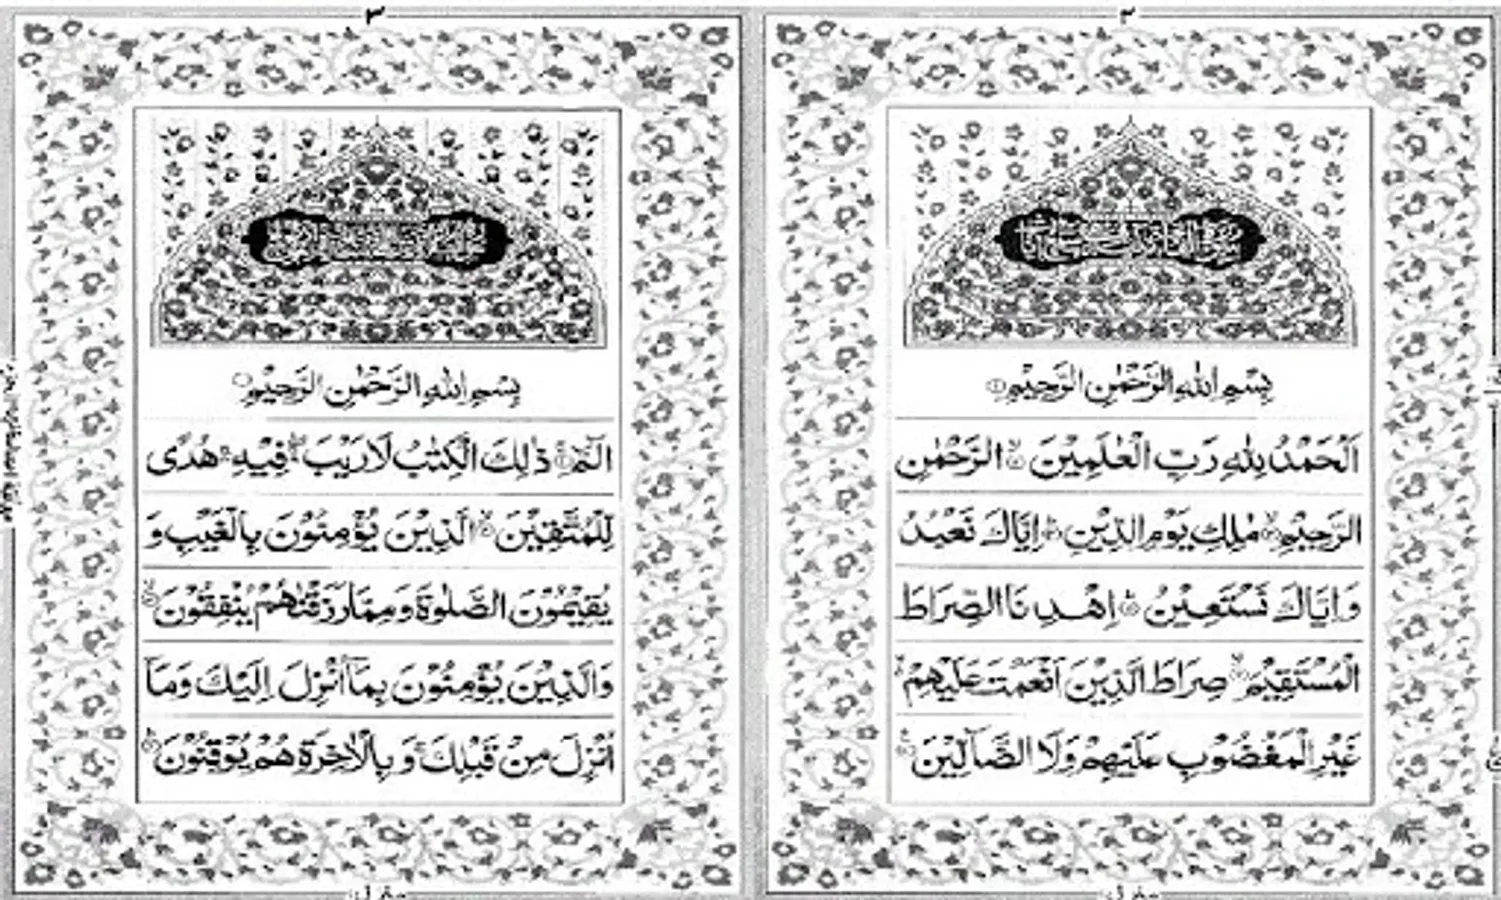 بِسْمِ اللهِ الرَّحْمٰنِ الرَّحِيْمِ ①
اَلْحَمْدُ لِلّٰهِ رَبِّ الْعٰلَمِيْنَ الرَّحْمٰنِ
الرَّحِيْمِ مٰلِكِ يَوْمِ الدِّيْنِ اِيَّاكَ نَعْبُدُ
وَ اِيَّاكَ نَسْتَعِيْنُ اِهْدِ نَا الصِّرَاطَ
الْمُسْتَقِيْمَ صِرَاطَ الَّذِيْنَ اَنْعَمْتَ عَلَيْهِمْ
غَيْرِ الْمَغْضُوْبِ عَلَيْهِمْ وَلَا الضَّآلِّيْنَ
٣
بِسْمِ اللهِ الرَّحْمٰنِ الرَّحِيْمِ
الٓمّٓ ذٰلِكَ الْكِتٰبُ لَا رَيْبَ فِيْهِ هُدًى
لِّلْمُتَّقِيْنَ الَّذِيْنَ يُؤْمِنُوْنَ بِالْغَيْبِ وَ
يُقِيْمُوْنَ الصَّلٰوةَ وَ مِمَّا رَزَقْنٰهُمْ يُنْفِقُوْنَ
وَالَّذِيْنَ يُؤْمِنُوْنَ بِمَآ اُنْزِلَ اِلَيْكَ وَمَآ
اُنْزِلَ مِنْ قَبْلِكَ وَ بِالْاٰخِرَةِ هُمْ يُوْقِنُوْنَ